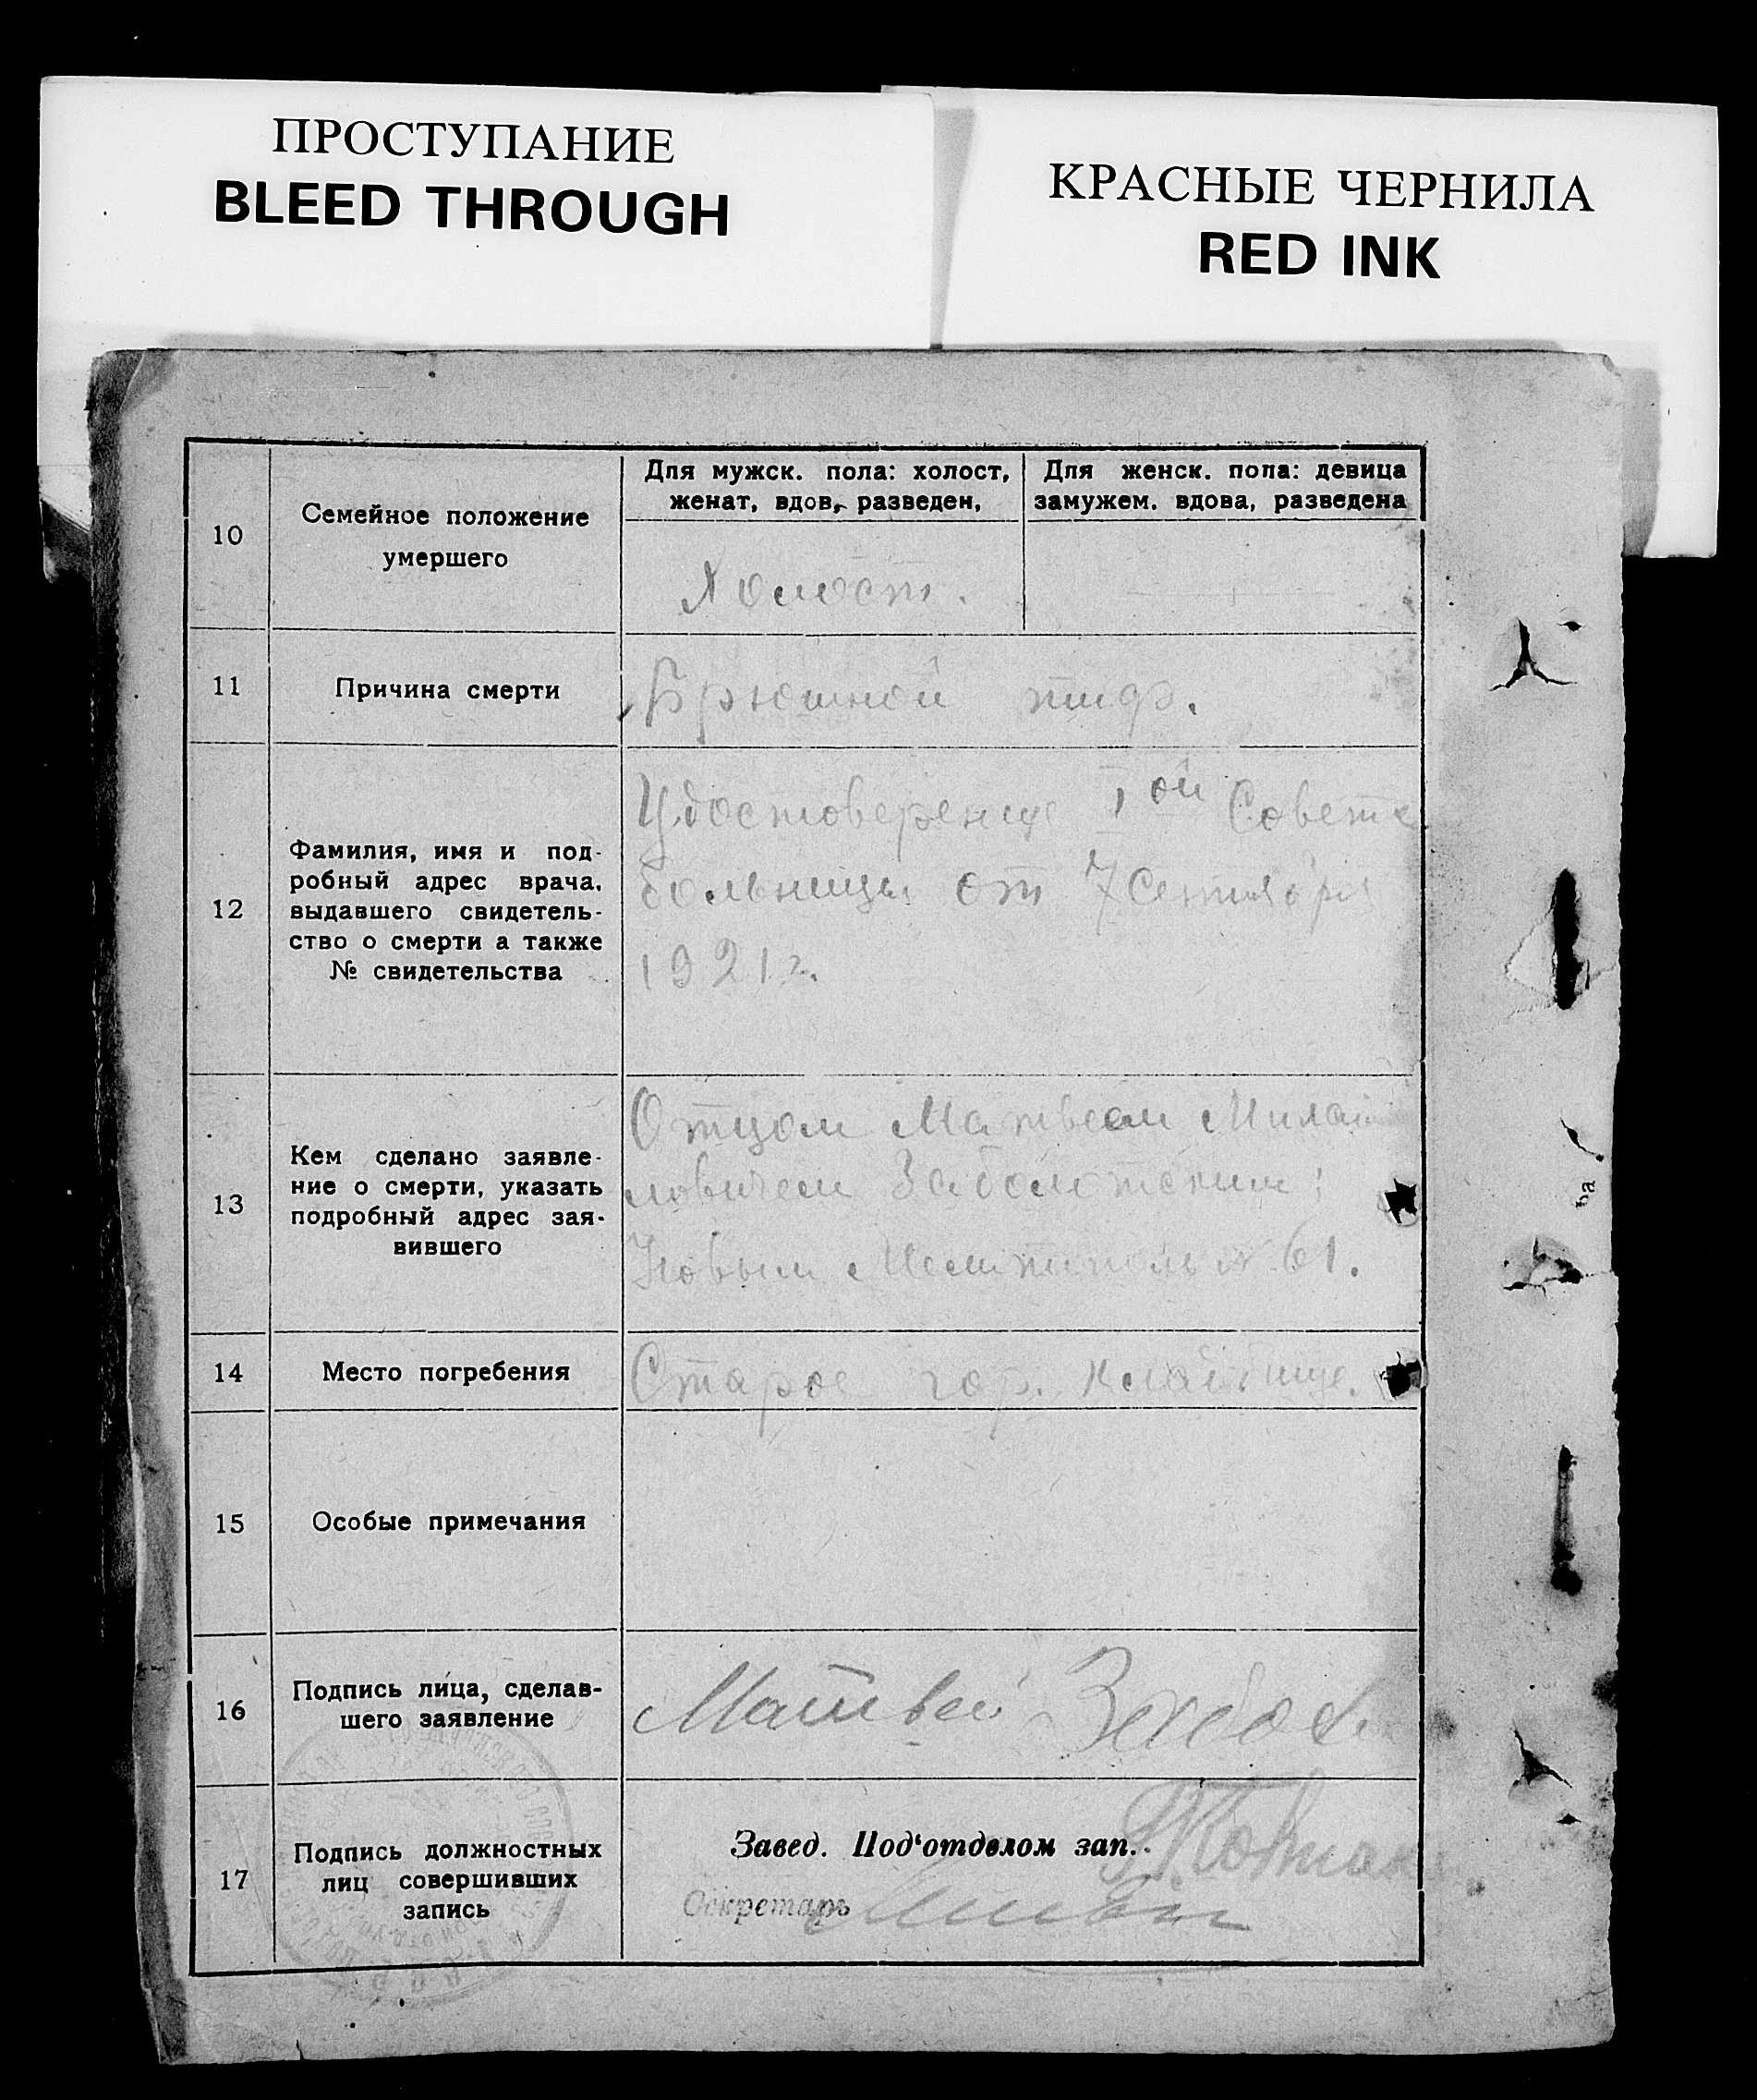 ПРОСТУПАНИЕ
BLEED THROUGH
КРАСНЫЕ ЧЕРНИЛА
RED INK
10
Семейное положение
умершего
Для мужск. пола: холост,
женат, вдов, разведен,
Для женск. пола: девица
замужем. вдова, разведена
Холост.
11
Причина смерти
Брюшной тиф.
12
Фамилия, имя и под-
робный адрес врача,
выдавшего свидетель-
ство о смерти а также
№ свидетельства
Удостоверение 1ой Советс
больницы от 7 Сентября
1921 г.
13
Кем сделано заявле-
ние о смерти, указать
подробный адрес зая-
вившего
Отцом Матвеем
Заболотским
61.
14
Место погребения
Старое гор. кладбище.
15
Особые примечания
16
Подпись лица, сделав-
шего заявление
Матвей Забол
17
Подпись должностных
лиц совершивших
запись
Завед. Под'отделом зап.
Секретарь
ва